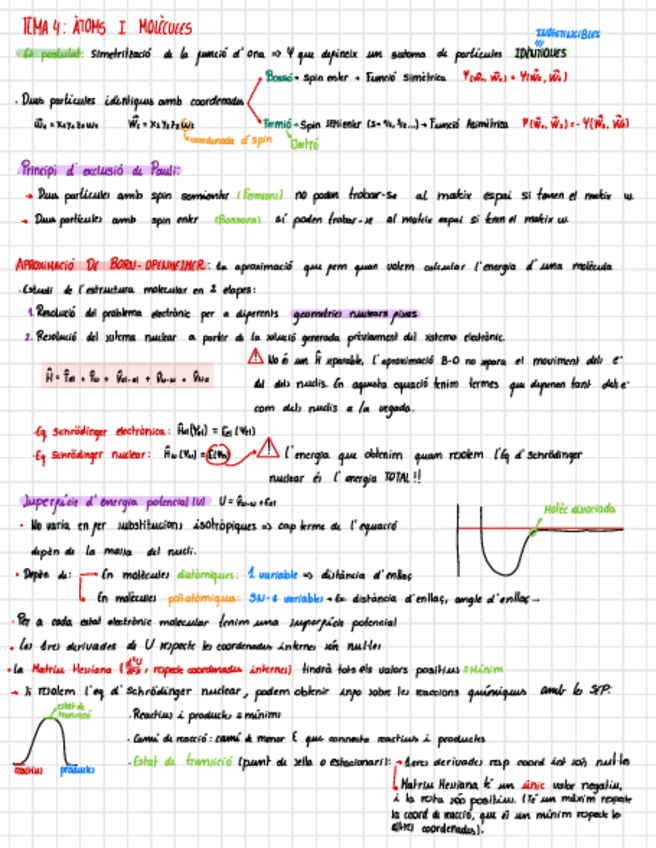 TEMA 4: ÀTOMS I MOLÈCULES
INDISTINGIBLES
6è postulat: Simetrització de la funció d'ona => Ψ que defineix un sistema de partícules IDÈNTIQUES
Bosó → spin enter → Funció simètrica Ψ(w̄₁, w̄₂) = Ψ(w̄₂, w̄₁)
· Dues partícules idèntiques amb coordenades
w̄₁ = x₁y₁z₁w₁ w̄₂ = x₂y₂z₂w₂ Fermió → Spin SEMIenter (s = ½, 3/2...) → Funció Asimètrica Ψ(w̄₁, w̄₂) = -Ψ(w̄₂, w̄₁)
coordenada d'spin Electró
Principi d'exclusió de Pauli:
→ Dues partícules amb spin semienter (Fermions) no poden trobar-se al mateix espai si tenen el mateix w.
→ Dues partícules amb spin enter (Bosons) sí poden trobar-se al mateix espai si tenen el mateix w.
APROXIMACIÓ DE BORN-OPENHEIMER: La aproximació que fem quan volem calcular l'energia d'una molècula
· Estudi de l'estructura molecular en 2 etapes:
1. Resolució del problema electrònic per a diferents geometries nuclears fixes
2. Resolució del sistema nuclear a partir de la solució generada prèviament del sistema electrònic.
⚠ No és un Ĥ separable, l'aproximació B-O no separa el moviment dels e⁻
Ĥ = T̂el + T̂N + V̂el-el + V̂N-N + V̂N-e
del dels nuclis. En aquesta equació tenim termes que depenen tant dels e⁻
com dels nuclis a la vegada.
· Eq Schrödinger electrònica: Ĥel(Ψel) = Eel(Ψel)
· Eq Schrödinger nuclear: ĤN(ΨN) = E(ΨN) ⚠ l'energia que obtenim quan resolem l'Eq d'schrödinger
nuclear és l'energia TOTAL!!
Superfície d'energia potencial (U) U = V̂N-N + Eel
Molèc dissociada
· No varia en fer substitucions isotòpiques => cap terme de l'equació
depèn de la massa del nucli.
· Depèn de: En molècules diatòmiques: 1 variable => distància d'enllaç
En molècules poliatòmiques: 3N-6 variables → Ex distància d'enllaç, angle d'enllaç...
· Per a cada estat electrònic molecular tenim una superfície potencial
· Les 1res derivades de U respecte les coordenades internes són nul·les
· La Matriu Hessiana (, respecte coordenades internes) tindrà tots els valors positius = Mínim
→ Si resolem l'eq d'Schrödinger nuclear, podem obtenir info sobre les reaccions químiques amb la SEP:
estat de transició
· Reactius i productes = mínims
· Camí de reacció: camí de menor E que connecta reactius i productes
reactius productes · Estat de transició (punt de sella o estacionari): → 1eres derivades resp coord int són nul·les
Matriu Hessiana té un únic valor negatiu,
i la resta són positius. (Té un màxim respecte
la coord de reacció, que és un mínim respecte les
altres coordenades).